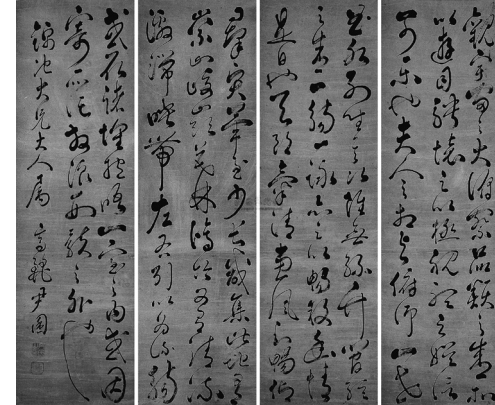 觀宇宙之大俯察品類之盛所
以遊目騁懷足以極視聽之娛信
可樂也夫人之相與俯仰一世
曲水列坐其次雖無絲竹管絃
之盛一觴一詠亦足以暢敘幽情
是日也天朗氣清惠風和暢仰
羣賢畢至少長咸集此地有
崇山峻嶺茂林修竹又有清流
激湍映帶左右引以為流觴
或取諸懷抱悟言一室之內或因
寄所託放浪形骸之外
錦池大兄大人屬